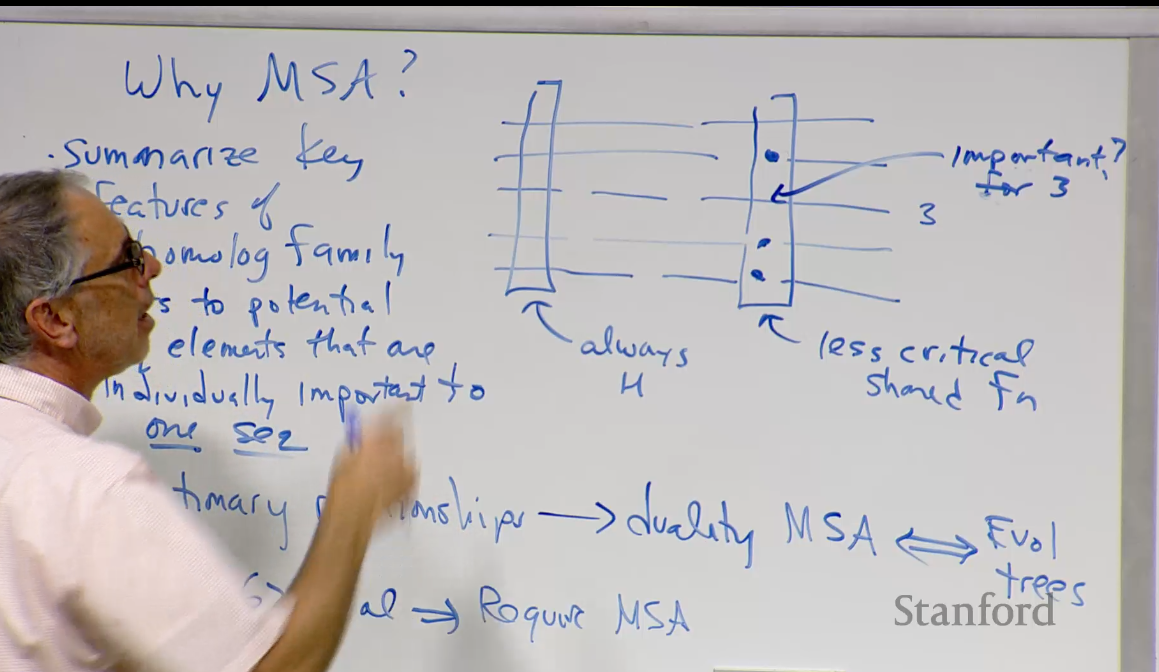 Why MSA?
• Summarize key
features of
homolog family
to potential
elements that are
individually important to
one seq
relationships → duality MSA ⟺ Evol
trees
⇒ Require MSA
important?
for 3
3
always
H
less critical
shared Fn
Stanford